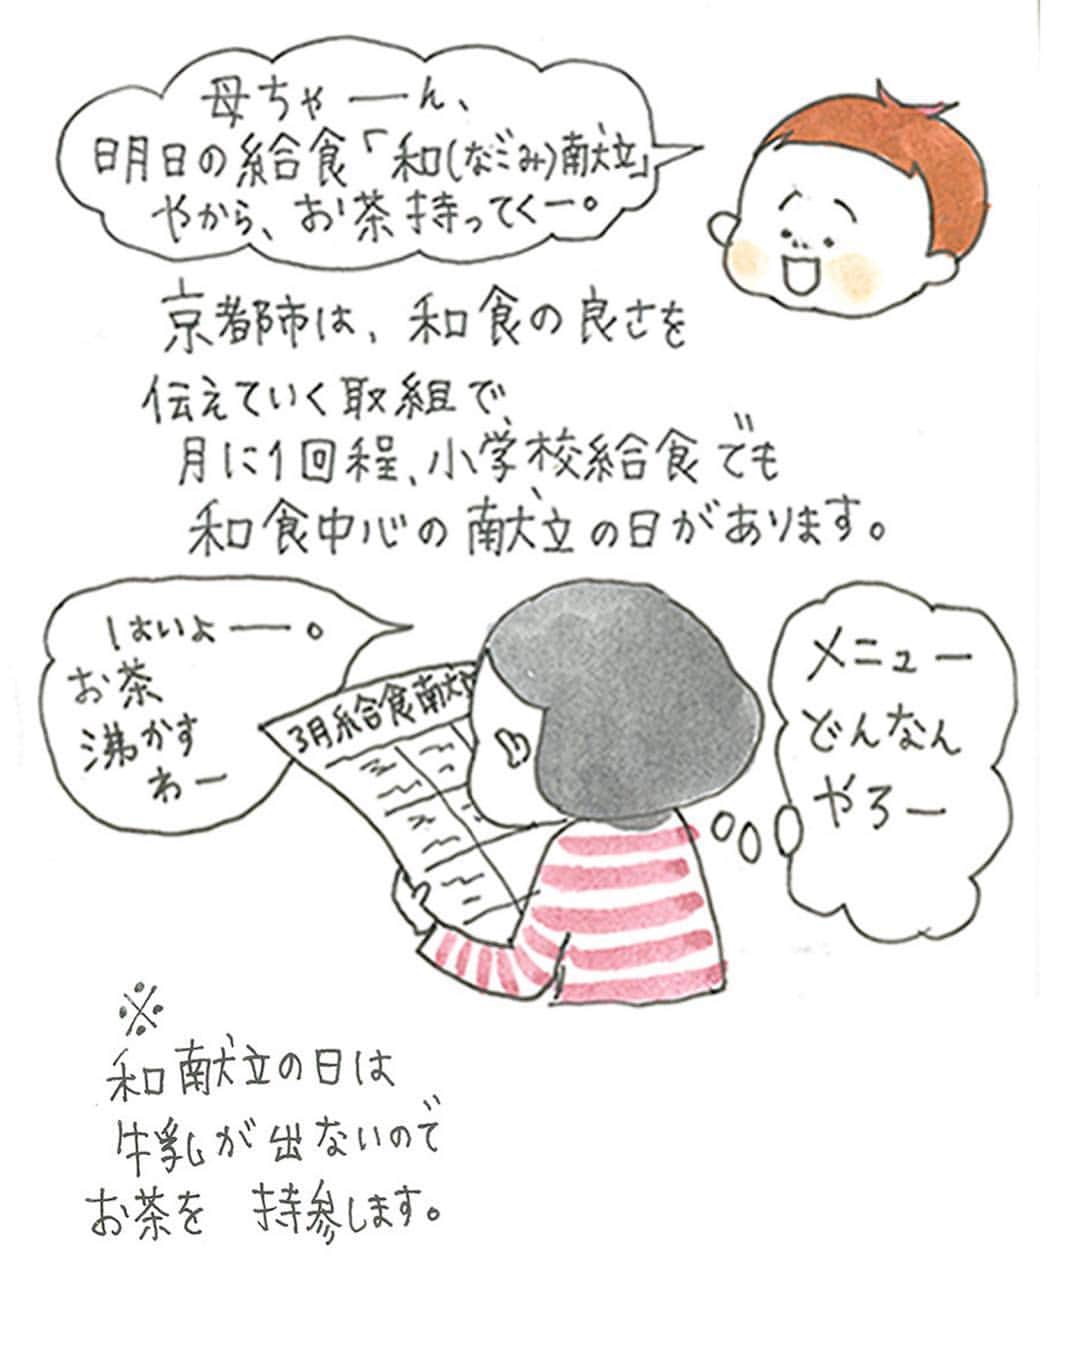 母ちゃーん、
明日の給食「和(なごみ)献立」
やから、お茶持ってくー。
京都市は、和食の良さを
伝えていく取組で、
月に1回程、小学校給食でも
和食中心の献立の日があります。
はいよー。
お茶
沸かす
わー
3月給食献立
メニュー
どんなん
やろー
※
和献立の日は
牛乳が出ないので
お茶を 持参します。